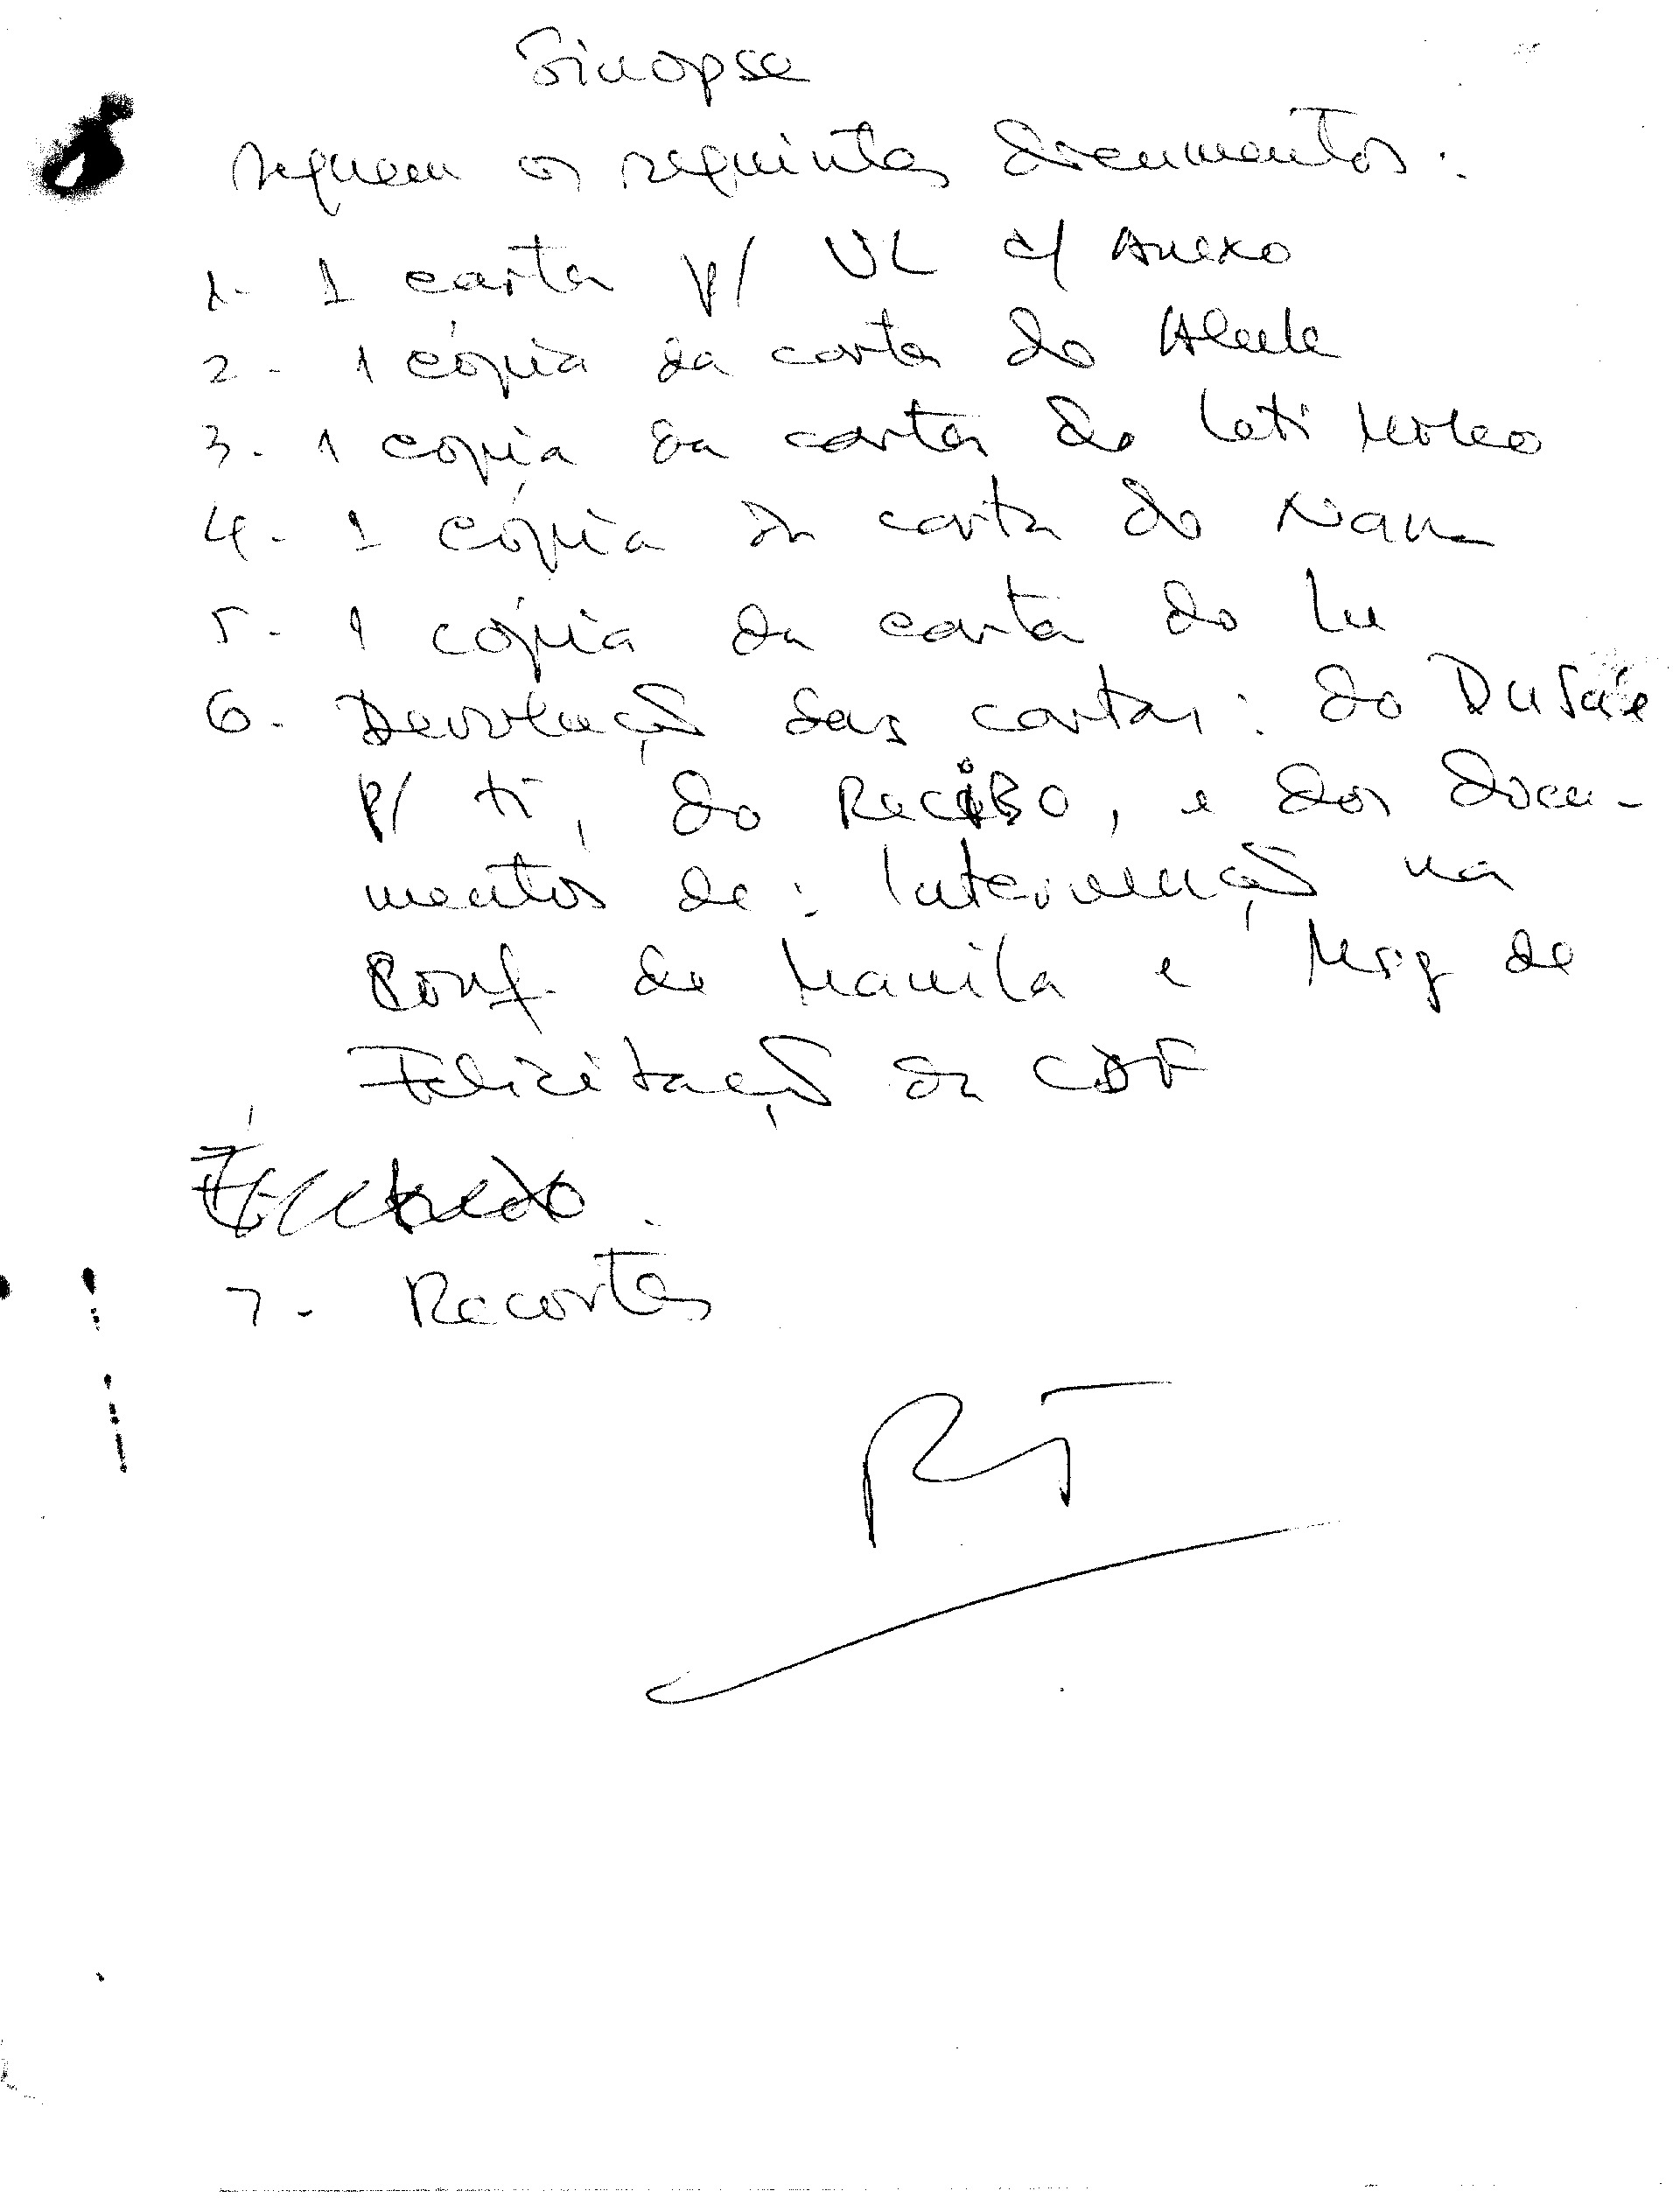 Sinopse
Seguem os seguintes documentos:
1- 1 carta p/ UL c/ Anexo
2- 1 cópia da carta do
3- 1 copia da carta do
4- 1 cópia da carta do
5- 1 cópia da carta do Lu
6- Devolução das cartas: do
p/ ti, do ReciBO, e dos docu-
mentos de: Intervenção na
Conf. de Manila e Msg de
Felicitação da
7- Recortes
RT